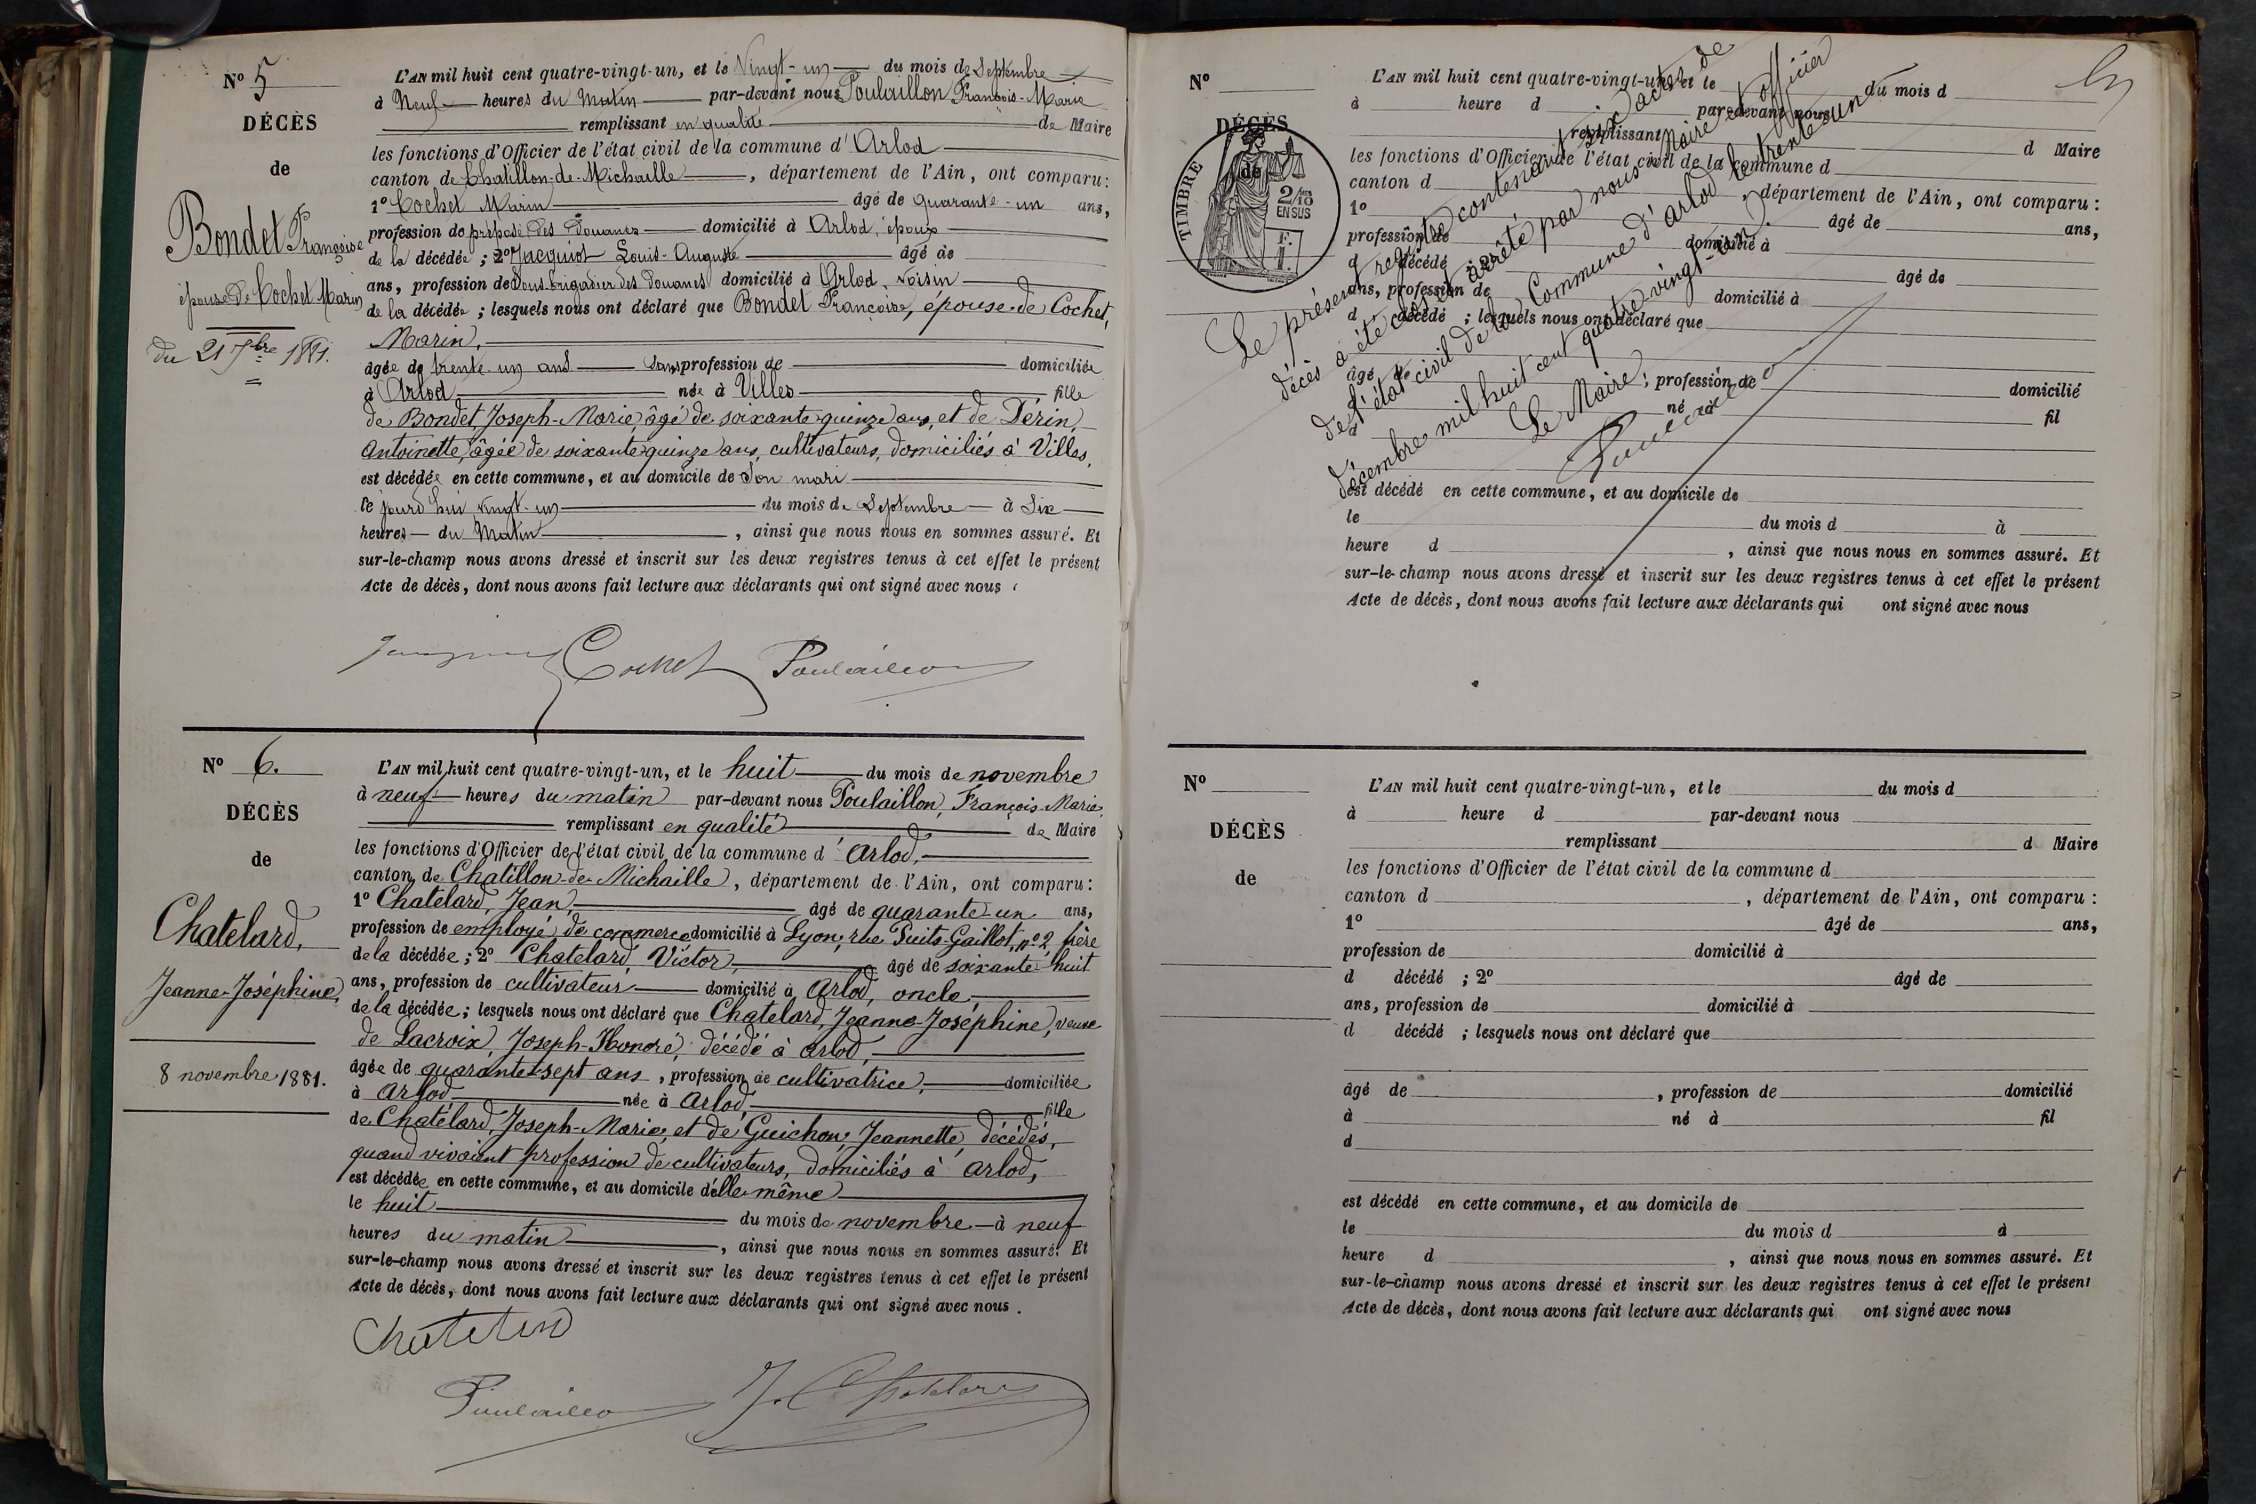 N° 5
DÉCÈS
de
Bondet Françoise
épouse de Cochet Marin
du 21 7bre 1881.
L'AN mil huit cent quatre-vingt-un, et le Vingt-un du mois de Septembre
à Neuf heures du Matin par-devant nous Poulaillon François-Marie
remplissant en qualité de Maire
les fonctions d'Officier de l'état civil de la commune d'Arlod
canton de Chatillon-de-Michaille, département de l'Ain, ont comparu:
1° Cochet Marin âgé de quarante-un ans,
profession de préposé des Douanes domicilié à Arlod, époux
de la décédée; 2° Jacquiot Louis-Auguste âgé de
ans, profession de Sous-brigadier des Douanes domicilié à Arlod, voisin
de la décédée; lesquels nous ont déclaré que Bondet Françoise, épouse de Cochet,
Marin,
âgée de trente-un ans sans profession de domiciliée
à Arlod née à Villes fille
de Bondet, Joseph-Marie, âgé de soixante-quinze ans, et de Dérin,
Antoinette, âgée de soixante-quinze ans, cultivateurs, domiciliés à Villes,
est décédée en cette commune, et au domicile de Son mari
le jourd'hui vingt-un du mois de Septembre à Six
heures du Matin, ainsi que nous nous en sommes assuré. Et
sur-le-champ nous avons dressé et inscrit sur les deux registres tenus à cet effet le présent
Acte de décès, dont nous avons fait lecture aux déclarants qui ont signé avec nous
Cochet Poulaillon
N° 6.
DÉCÈS
de
Chatelard,
Jeanne-Joséphine,
8 novembre 1881.
L'AN mil huit cent quatre-vingt-un, et le huit du mois de novembre
à neuf heures du matin par-devant nous Poulaillon, François-Marie,
remplissant en qualité de Maire
les fonctions d'Officier de l'état civil de la commune d'Arlod,
canton de Chatillon-de-Michaille, département de l'Ain, ont comparu:
1° Chatelard, Jean, âgé de quarante-un ans,
profession de employé de commerce domicilié à Lyon, rue Puits-Gaillot, n° 2, frère
de la décédée; 2° Chatelard, Victor, âgé de soixante-huit
ans, profession de cultivateur domicilié à Arlod, oncle,
de la décédée; lesquels nous ont déclaré que Chatelard, Jeanne-Joséphine, veuve
de Lacroix, Joseph-Honoré, décédé à Arlod,
âgée de quarante-sept ans, profession de cultivatrice, domiciliée
à Arlod née à Arlod, fille
de Chatelard, Joseph-Marie, et de Guichon, Jeannette, décédés,
quand vivaient profession de cultivateurs, domiciliés à Arlod,
est décédée en cette commune, et au domicile d'elle-même
le huit du mois de novembre à neuf
heures du matin, ainsi que nous nous en sommes assuré. Et
sur-le-champ nous avons dressé et inscrit sur les deux registres tenus à cet effet le présent
Acte de décès, dont nous avons fait lecture aux déclarants qui ont signé avec nous.
Poulaillon J. Chatelard
N°
DÉCÈS
de
TIMBRE
2/10
EN SUS
F.
1.
L'AN mil huit cent quatre-vingt-un, et le du mois d
à heure d par-devant nous
remplissant d Maire
les fonctions d'Officier de l'état civil de la commune d
canton d , département de l'Ain, ont comparu:
1° âgé de ans,
profession de domicilié à
d décédé ; 2° âgé de
ans, profession de domicilié à
d décédé ; lesquels nous ont déclaré que
âgé de , profession de domicilié
à né à fil
d
est décédé en cette commune, et au domicile de
le du mois d à
heure d , ainsi que nous nous en sommes assuré. Et
sur-le-champ nous avons dressé et inscrit sur les deux registres tenus à cet effet le présent
Acte de décès, dont nous avons fait lecture aux déclarants qui ont signé avec nous
Le présent registre contenant six actes de
décès a été clos et arrêté par nous Maire et officier
de l'état civil de la Commune d'Arlod le trente-un
décembre mil huit cent quatre-vingt-un.
Le Maire,
Poulaillon
N°
DÉCÈS
de
L'AN mil huit cent quatre-vingt-un, et le du mois d
à heure d par-devant nous
remplissant d Maire
les fonctions d'Officier de l'état civil de la commune d
canton d , département de l'Ain, ont comparu:
1° âgé de ans,
profession de domicilié à
d décédé ; 2° âgé de
ans, profession de domicilié à
d décédé ; lesquels nous ont déclaré que
âgé de , profession de domicilié
à né à fil
d
est décédé en cette commune, et au domicile de
le du mois d à
heure d , ainsi que nous nous en sommes assuré. Et
sur-le-champ nous avons dressé et inscrit sur les deux registres tenus à cet effet le présent
Acte de décès, dont nous avons fait lecture aux déclarants qui ont signé avec nous